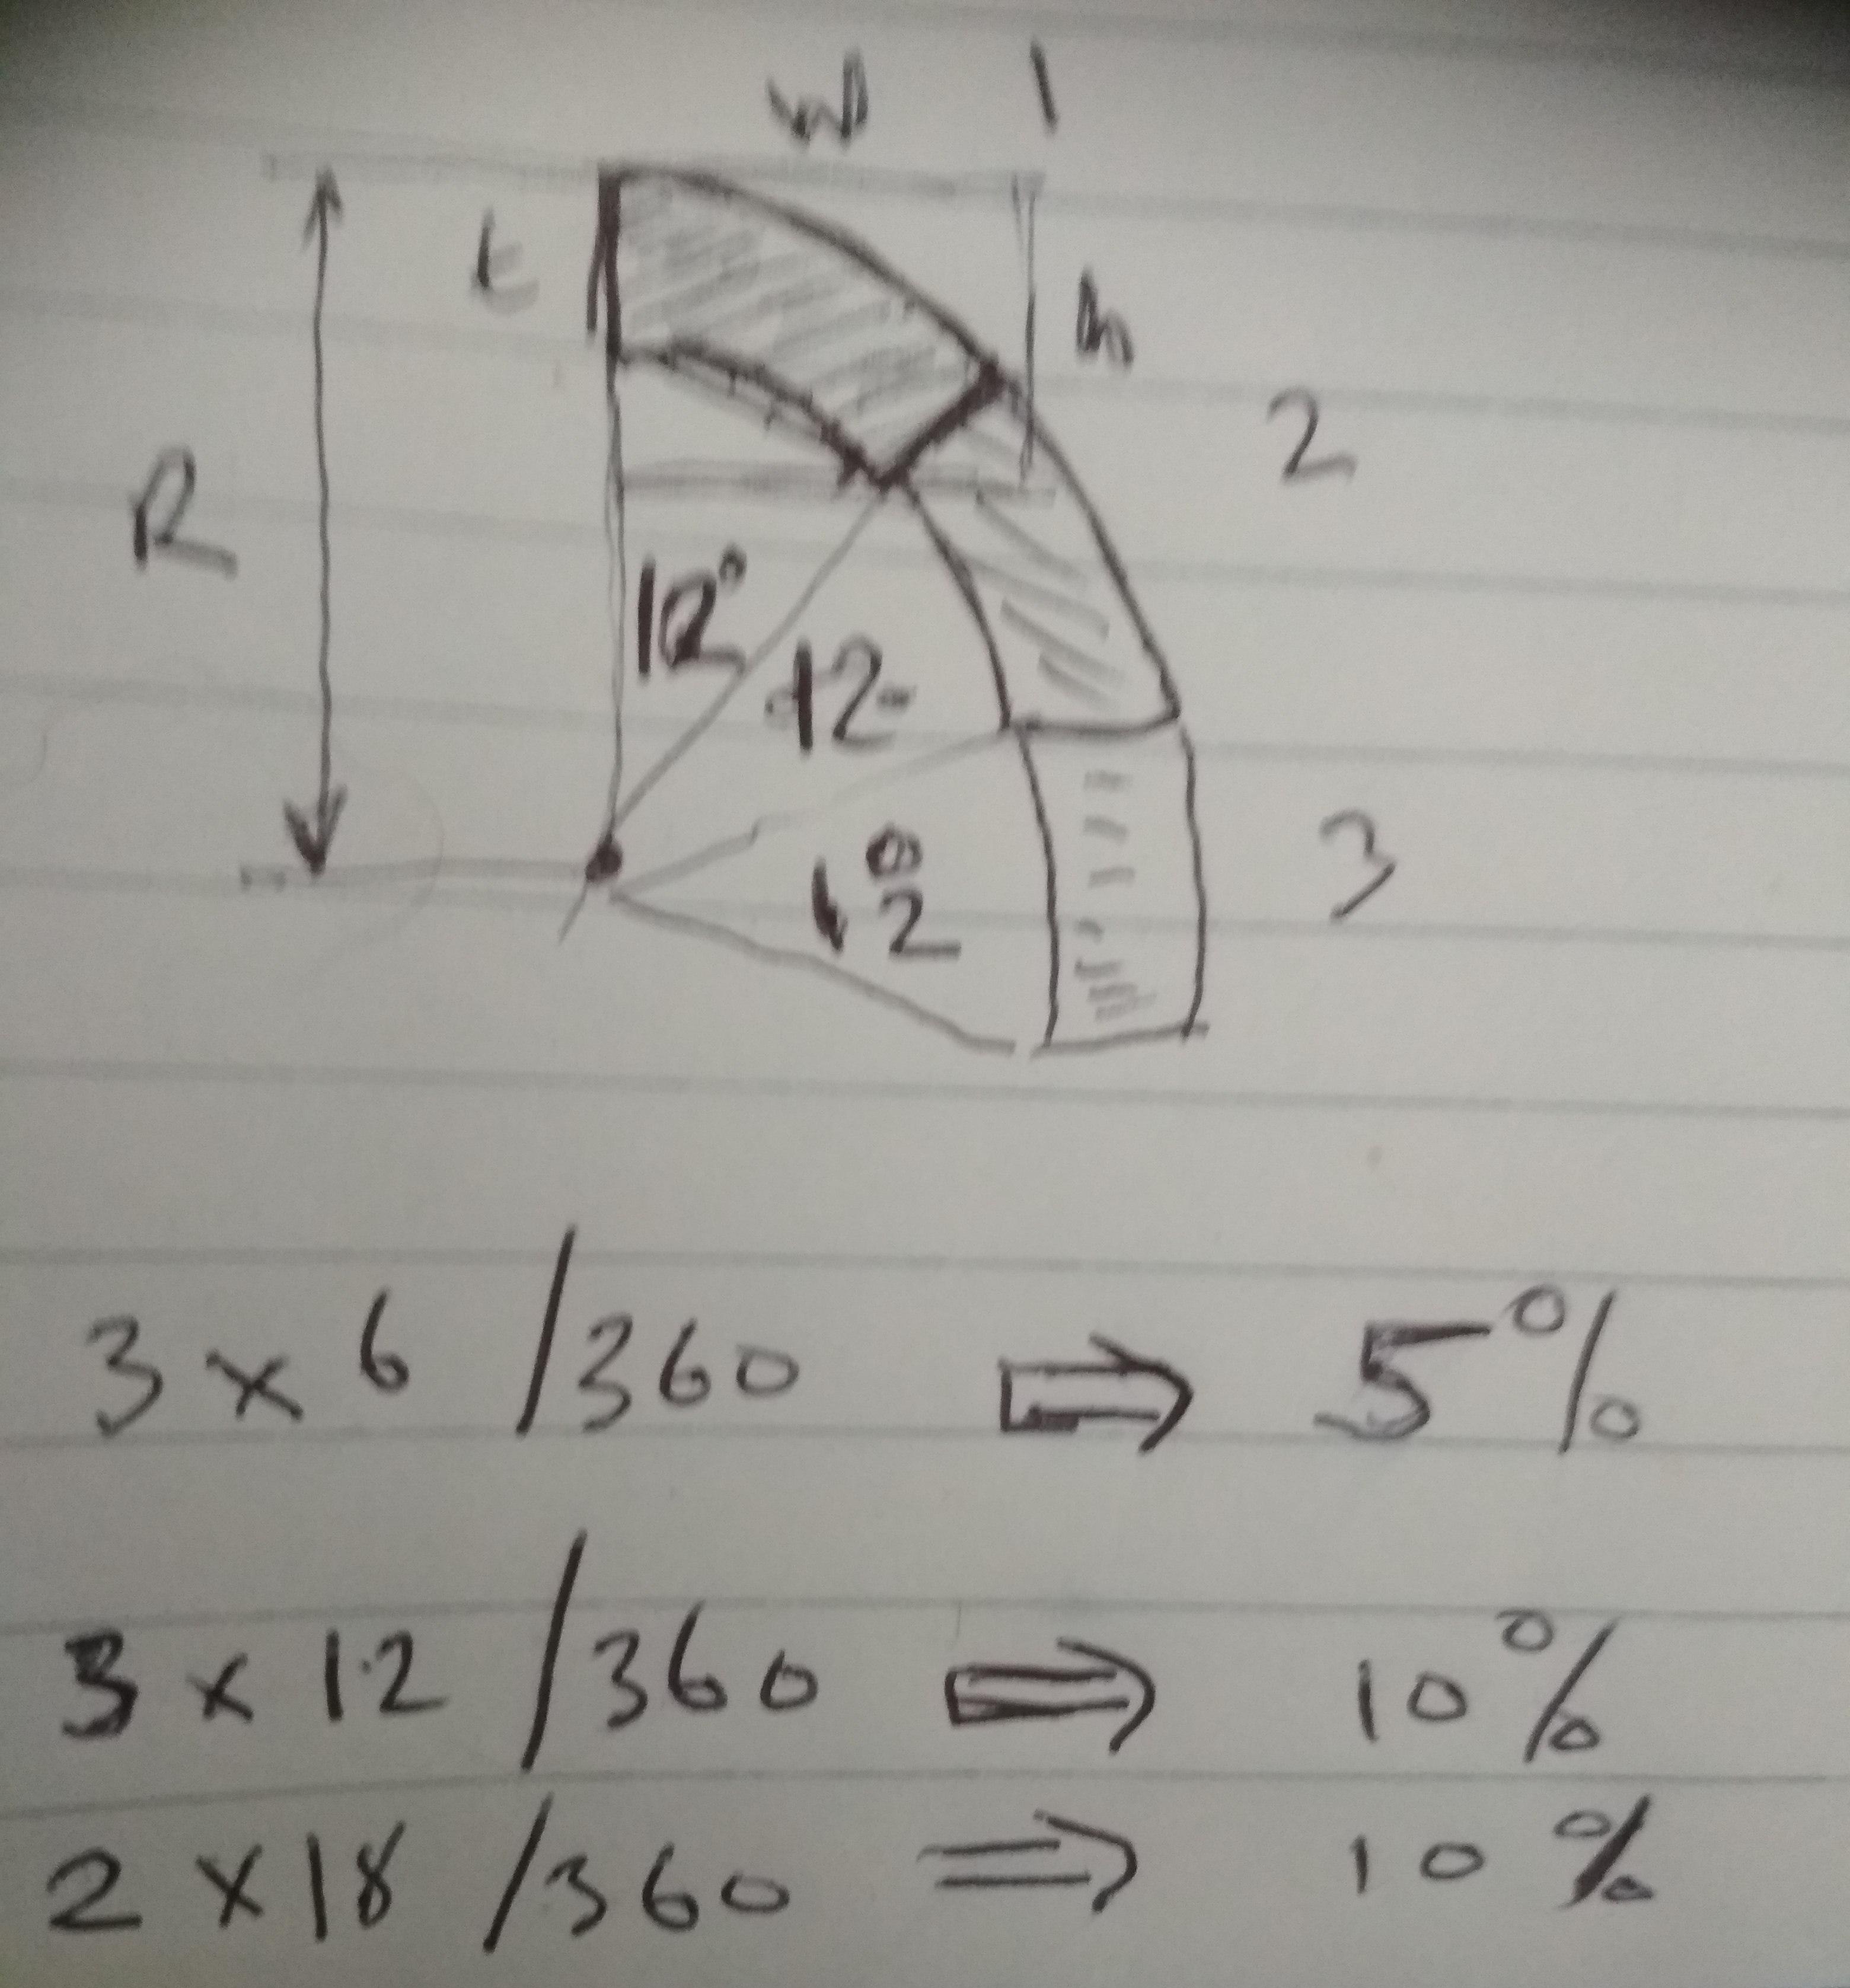 W 1
t
h
2
R
12°
12°
3
12°
3 x 6 / 360 ⇒ 5%
3 x 12 / 360 ⇒ 10%
2 x 18 / 360 ⇒ 10%